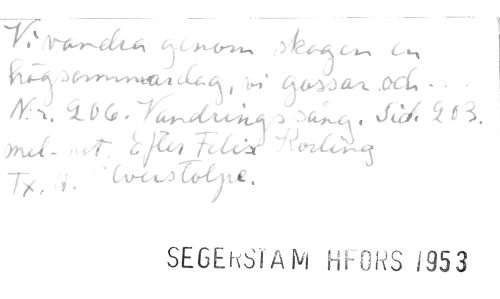 Vi vandra genom skogen en
högsommardag, vi gossar och...
Nr. 206. Vandringssång. Sid. 203.
mel- not. Efter Felix Körling
Tx. A. Silverstolpe.
SEGERSTAM HFORS 1953